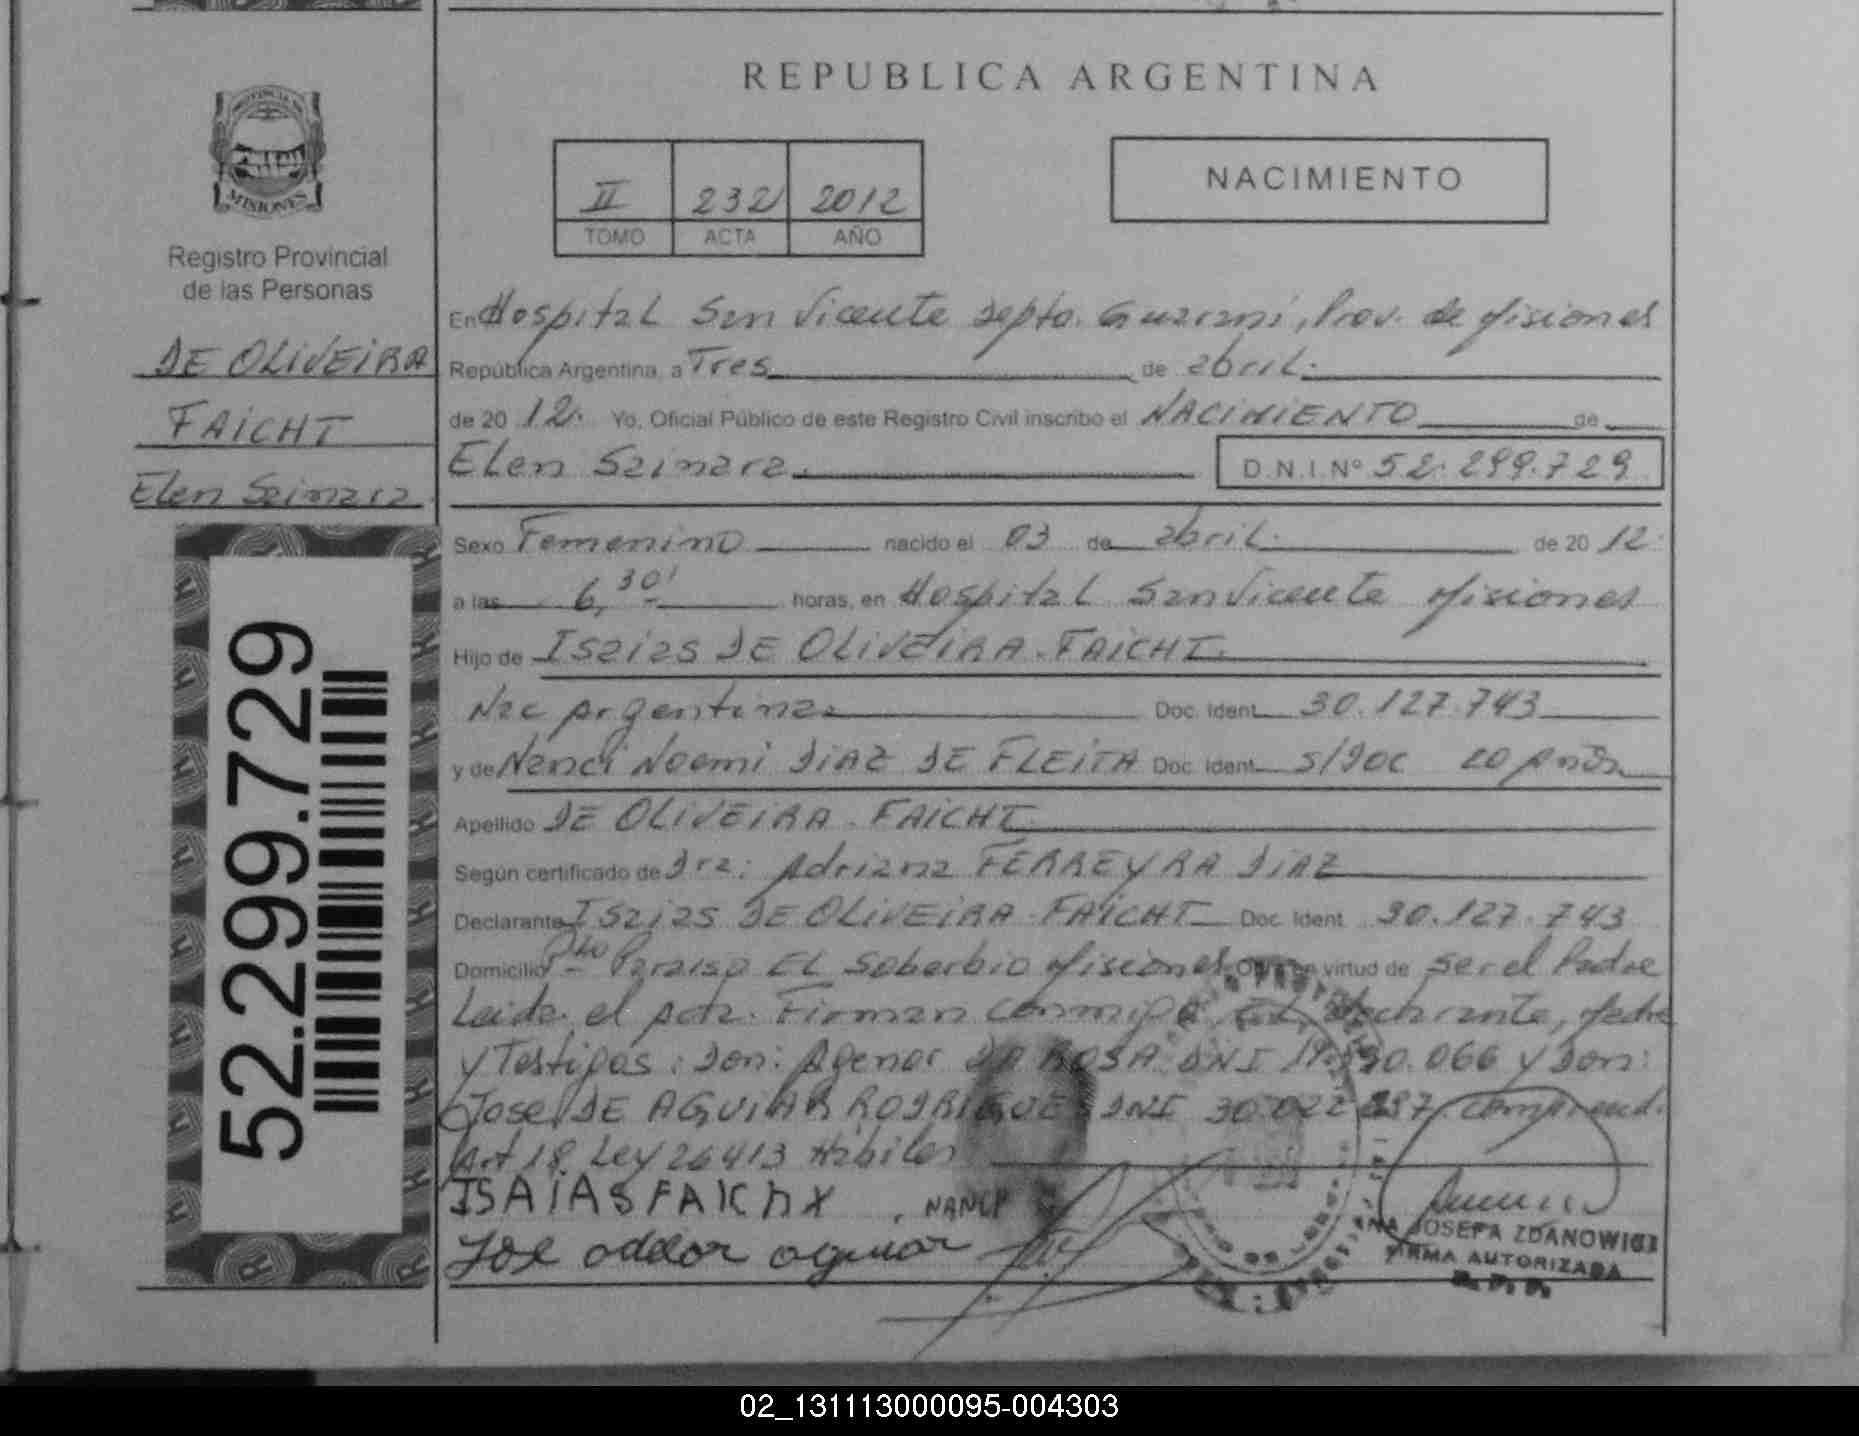 REPUBLICA ARGENTINA
PROVINCIA DE
MISIONES
Registro Provincial
de las Personas
DE OLIVEIRA
FAICHT
Elen Sainara
52.299.729
II 232 2012
TOMO ACTA AÑO
NACIMIENTO
En Hospital San Vicente Depto. Guarani, Prov. de Misiones
República Argentina, a Tres de abril.
de 20 12. Yo, Oficial Público de este Registro Civil inscribo el NACIMIENTO de
Elen Sainara. D.N.I. Nº 52.299.729
Sexo Femenino nacido el 03 de abril. de 20 12.
a las 6,30' horas, en Hospital San Vicente Misiones
Hijo de Isaias DE OLIVEIRA FAICHT.
Nac Argentina Doc. Ident. 30.127.743
y de Nanci Noemi DIAZ DE FLEITA Doc. Ident. s/doc 20 Años
Apellido DE OLIVEIRA FAICHT
Según certificado de Dra: Adriana FERREYRA DIAZ
Declarante Isaias DE OLIVEIRA FAICHT Doc. Ident. 30.127.743
Domicilio Paraiso El Soberbio Misiones virtud de ser el Padre
Leida el Acta. Firman conmigo el declarante, Madre
y Testigos: Don: Agenor DA ROSA DNI 066 y Don:
Jose DE AGUIAR RODRIGUE DNI 30.022 
Art 18 Ley 26413 Habiles
ISAIAS FAICHT NANCI
aguiar
ANA JOSEFA ZDANOWICZ
FIRMA AUTORIZADA
R. P. P.
02_131113000095-004303